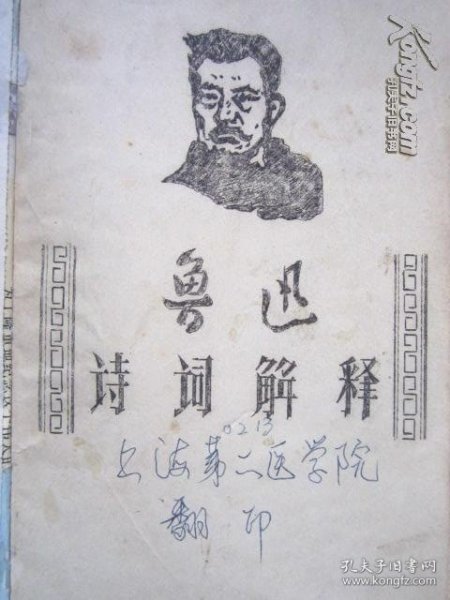 Kongfz.com
孔夫子旧书网
鲁迅
诗词解释
0213
上海第二医学院
翻印
孔夫子旧书网
www.kongfz.com